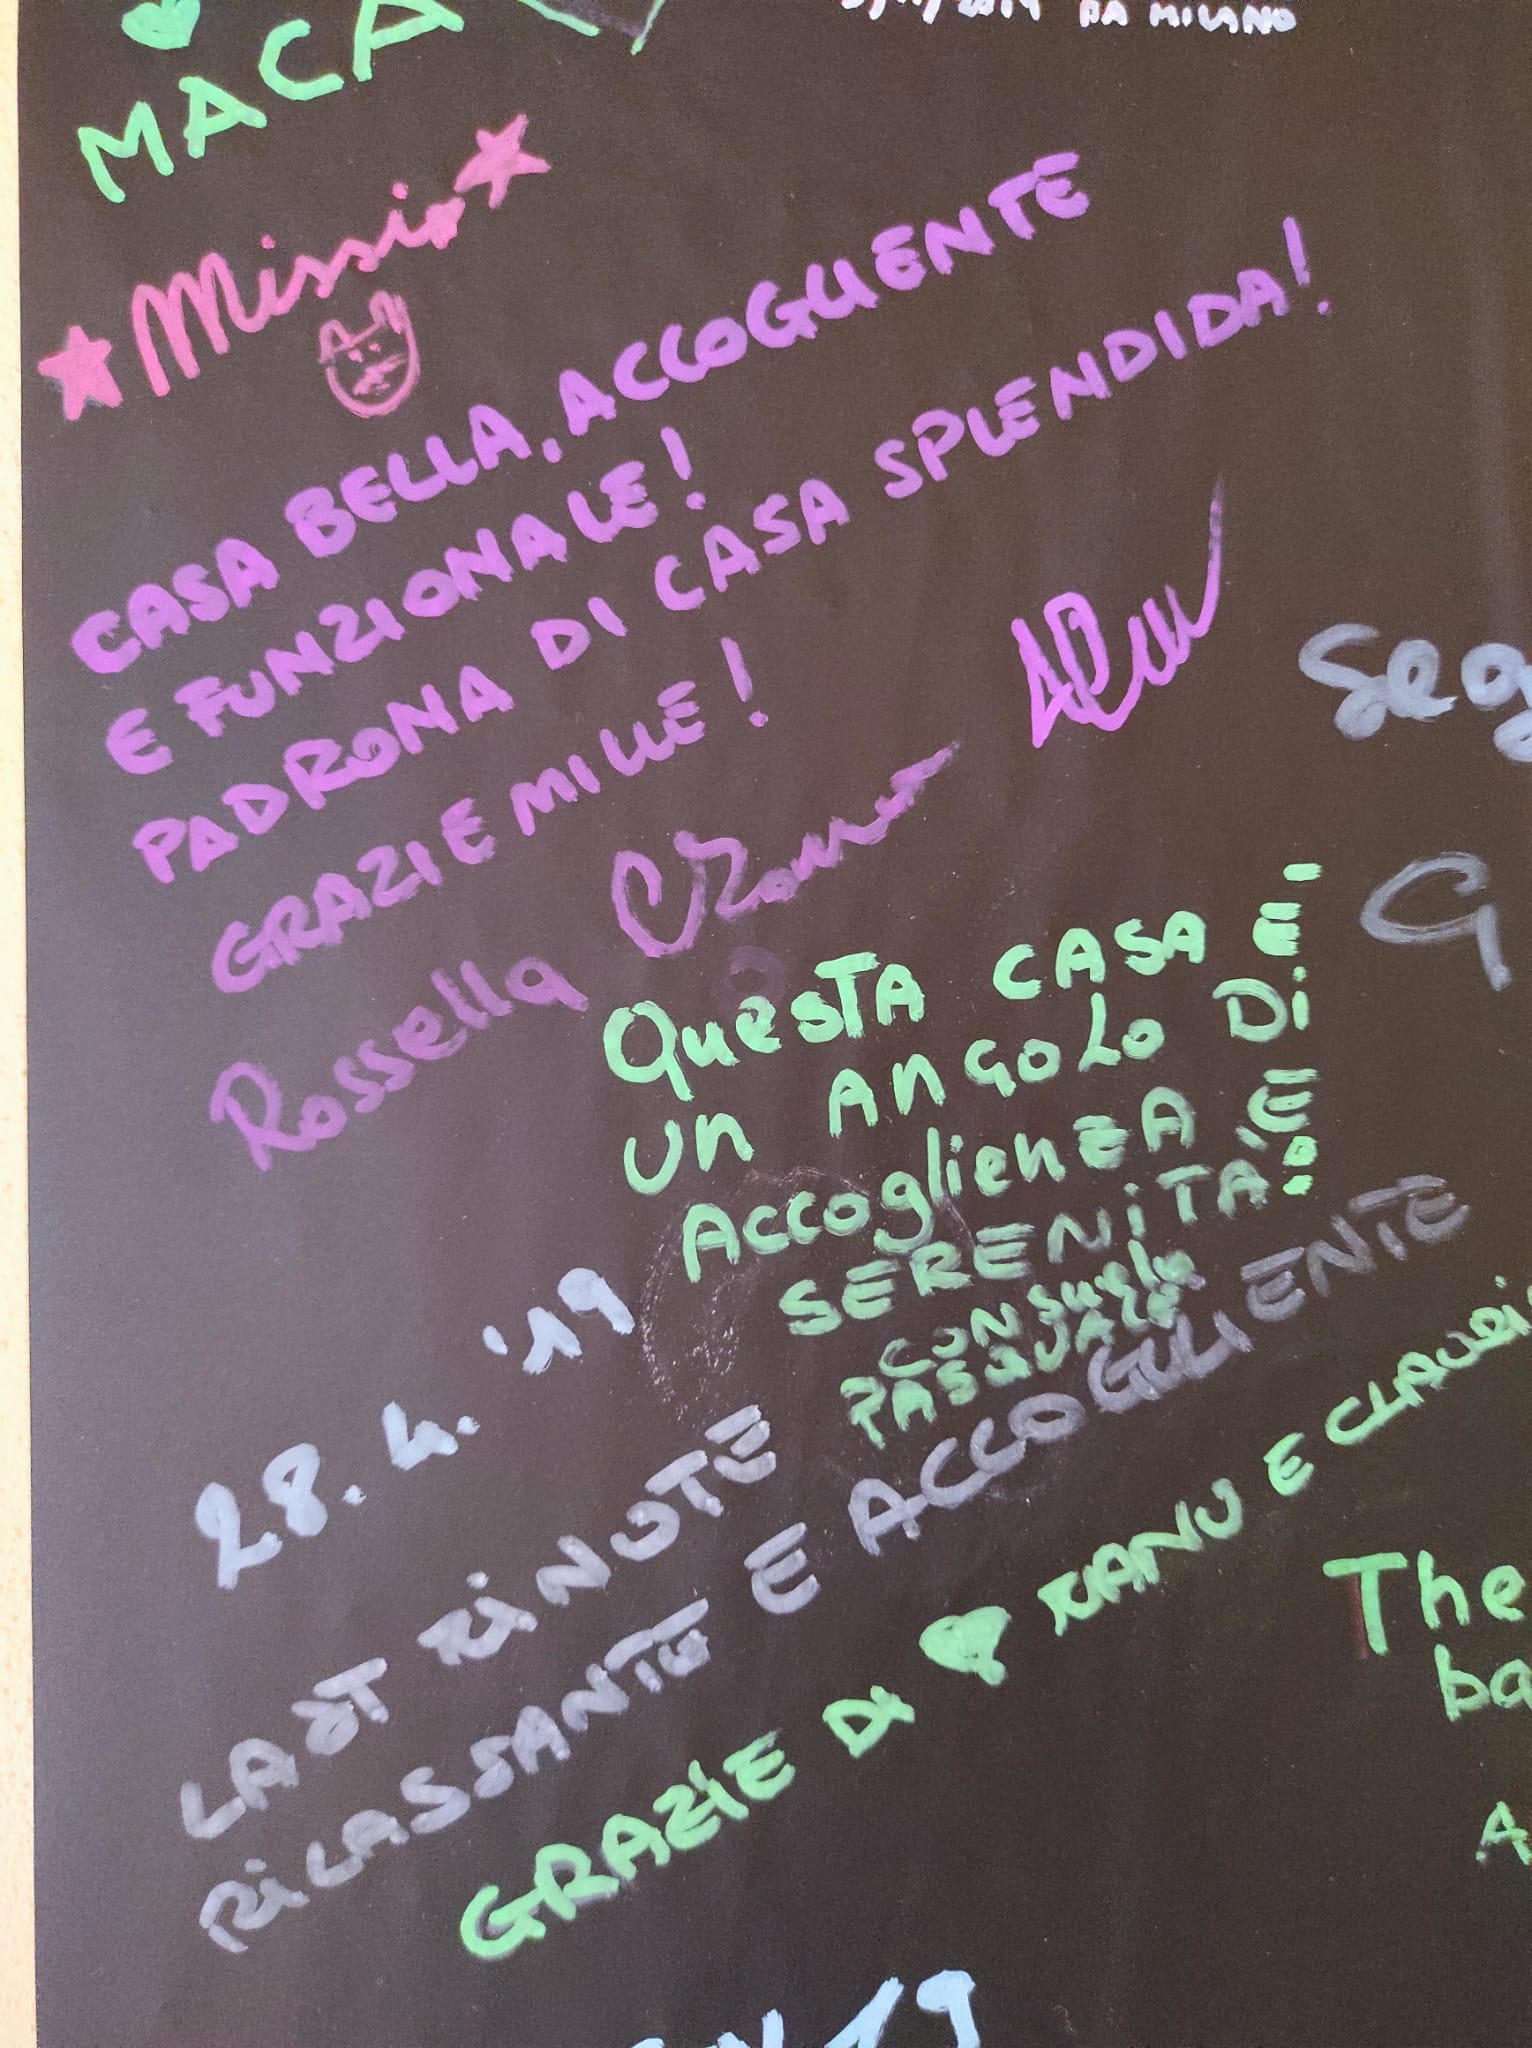 DA MILANO
MACA
Missi
CASA BELLA, ACCOGLIENTE
E FUNZIONALE!
PADRONA DI CASA SPLENDIDA!
GRAZIE MILLE!
Rossella
Seg
G
QuesTA CASA E'
un AngoLo Di
Accoglienza E
SERENiTA'
CONSuelo
PASQUALE
28.4.'19
LAST MINUTE
RiLASSANTE E ACCOGLIENTE
GRAZIE DI NANU E CLAUDI
The
ba
A
19